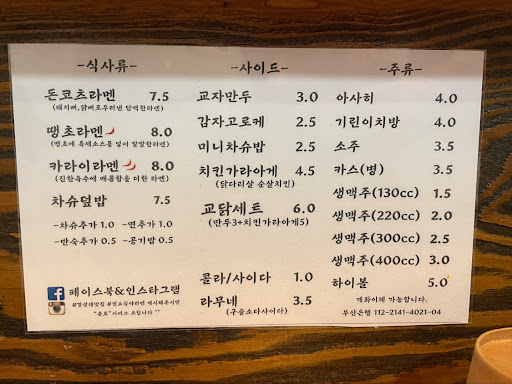 -식사류-
돈코츠라멘 7.5
(돼지뼈,닭뼈로우려낸 담백한라멘)
땡초라멘 8.0
(땡초에 특제소스를 넣어 깔깔한라멘)
카라이라멘 8.0
(진한육수에 매콤함을 더한 라멘)
차슈덮밥 7.5
-차슈추가 1.0 -면추가 1.0
-반숙추가 0.5 -공기밥 0.5
페이스북&인스타그램
게시해주시면
"음료"서비스 드립니다 ^^
-사이드-
교자만두 3.0
감자고로케 2.5
미니차슈밥 2.5
치킨가라아게 4.5
(닭다리살 순살치킨)
교닭세트 6.0
(만두3+치킨가라아게5)
콜라/사이다 1.0
라무네 3.5
(구슬소다사이다)
-주류-
아사히 4.0
기린이치방 4.0
소주 3.5
카스(병) 3.5
생맥주(130cc) 1.5
생맥주(220cc) 2.0
생맥주(300cc) 2.5
생맥주(400cc) 3.0
하이볼 5.0
계좌이체 가능합니다.
부산은행 112-2141-4021-04